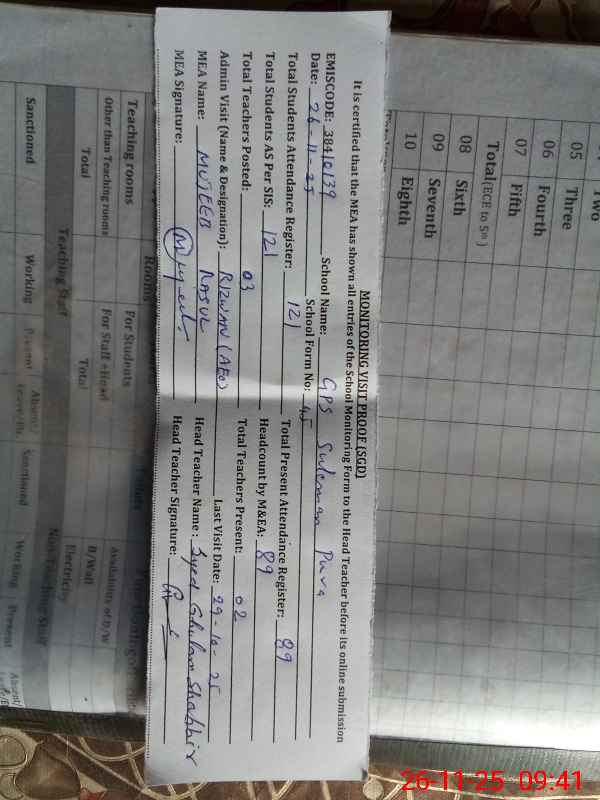 MONITORING VISIT PROOF (SGD)
It is certified that the MEA has shown all entries of the School Monitoring Form to the Head Teacher before its online submission
EMISCODE: 38410139 School Name: GPS Suleman Pura
Date: 26-11-25 School Form No: 45
Total Students Attendance Register: 121 Total Present Attendance Register: 89
Total Students AS Per SIS: 121 Headcount by M&EA: 89
Total Teachers Posted: 03 Total Teachers Present: 02
Admin Visit (Name & Designation): RIZWAN (AEO) Last Visit Date: 29-10-25
MEA Name: MUJEEB RASUL Head Teacher Name: Syed Ghulam Shabbir
MEA Signature: Mujeeb Head Teacher Signature:
Two
05 Three
06 Fourth
07 Fifth
Total (ECE to 5th)
08 Sixth
09 Seventh
10 Eighth
Rooms
Teaching rooms For Students
Other than Teaching rooms For Staff + Head Availability of B/W
Total Total B/Wall
Electricity
Teaching Staff Non-Teaching Staff
Sanctioned Working Present Absent/ Sanctioned Working Present Absent/
26-11-25 09:41